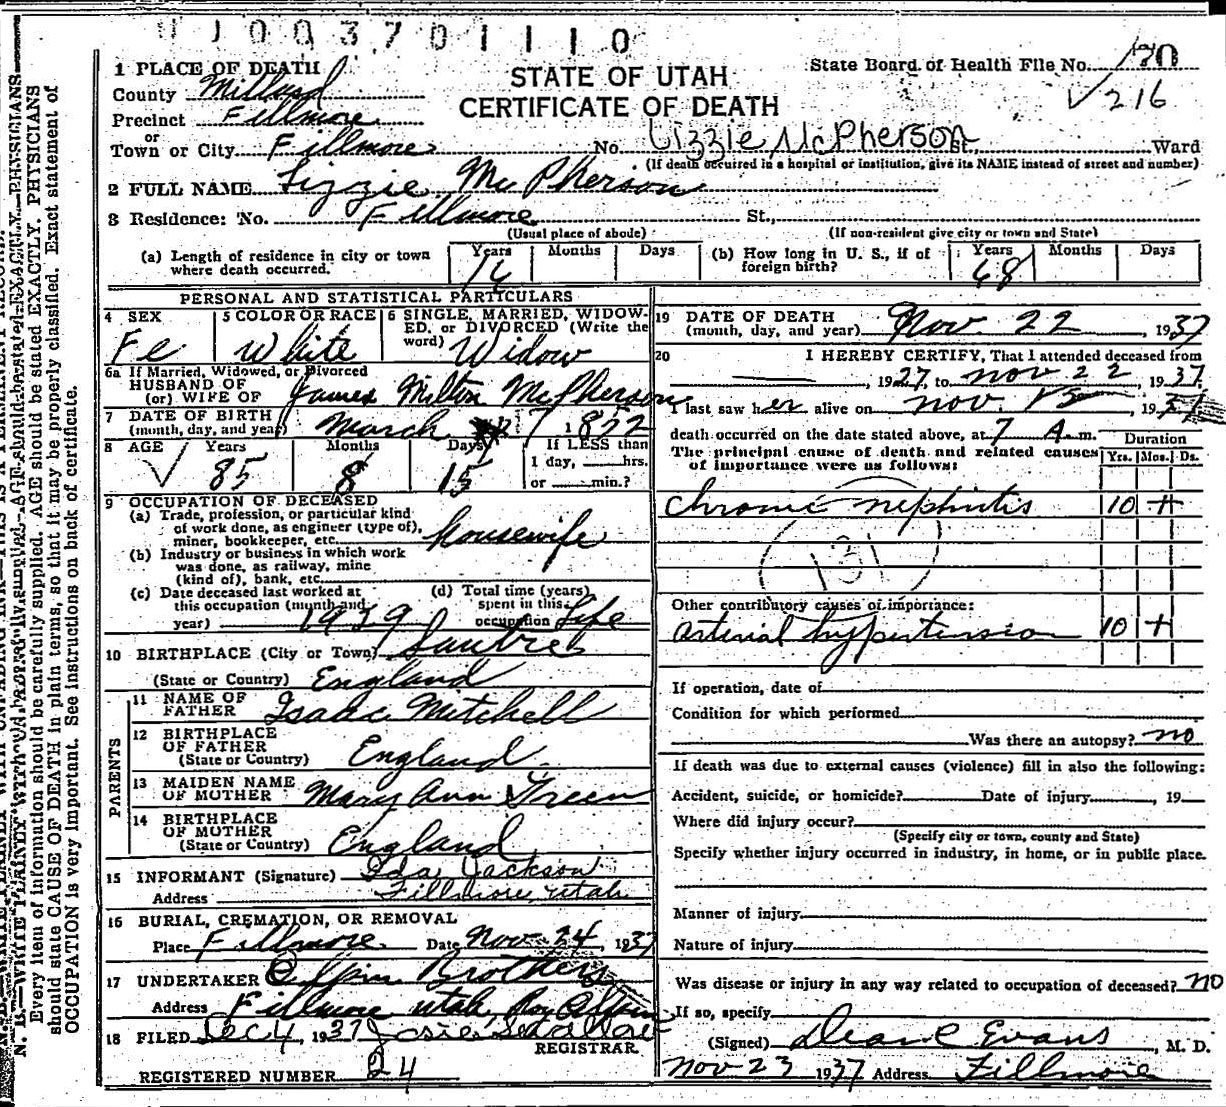 UJ00370 1110
1 PLACE OF DEATH
County Millard
Precinct Fillmore
or
Town or City Fillmore No. Lizzie McPherson St. Ward
(If death occurred in a hospital or institution, give its NAME instead of street and number)
STATE OF UTAH
CERTIFICATE OF DEATH
State Board of Health File No. 170
216
2 FULL NAME Lizzie McPherson
3 Residence: No. Fillmore St.,
(Usual place of abode) (If non-resident give city or town and State)
(a) Length of residence in city or town where death occurred. Years Months Days
(b) How long in U. S., if of foreign birth? Years 68 Months Days
PERSONAL AND STATISTICAL PARTICULARS
4 SEX Fe
5 COLOR OR RACE White
6 SINGLE, MARRIED, WIDOWED, or DIVORCED (Write the word) Widow
6a If Married, Widowed, or Divorced
HUSBAND OF
(or) WIFE OF James Milton McPherson
7 DATE OF BIRTH
(month, day, and year) March 7 1852
8 AGE Years 85 Months 8 Days 15
If LESS than
1 day, hrs.
or min.?
9 OCCUPATION OF DECEASED
(a) Trade, profession, or particular kind
of work done, as engineer (type of),
miner, bookkeeper, etc. housewife
(b) Industry or business in which work
was done, as railway, mine
(kind of), bank, etc.
(c) Date deceased last worked at
this occupation (month and
year) 1929
(d) Total time (years)
spent in this
occupation Life
10 BIRTHPLACE (City or Town)
(State or Country) England
PARENTS
11 NAME OF
FATHER Isaac Mitchell
12 BIRTHPLACE
OF FATHER
(State or Country) England
13 MAIDEN NAME
OF MOTHER Mary Ann Green
14 BIRTHPLACE
OF MOTHER
(State or Country) England
15 INFORMANT (Signature) Ida Jackson
Address Fillmore, Utah
16 BURIAL, CREMATION, OR REMOVAL
Place Fillmore Date Nov 24, 1937
17 UNDERTAKER Olpin Brothers
Address Fillmore Utah Roy Olpin
18 FILED Dec 4, 1937 Josie
REGISTRAR.
REGISTERED NUMBER 24
19 DATE OF DEATH
(month, day, and year) Nov. 22, 1937
20 I HEREBY CERTIFY, That I attended deceased from
, 1927, to nov 22, 1937
I last saw her alive on nov. , 1937
death occurred on the date stated above, at 7 A. m.
The principal cause of death and related causes
of importance were as follows:
Duration
Yrs. Mos. Ds.
Chronic nephritis 10 +
131
Other contributory causes of importance:
arterial hypertension 10 +
If operation, date of
Condition for which performed
Was there an autopsy? no
If death was due to external causes (violence) fill in also the following:
Accident, suicide, or homicide? Date of injury , 19
Where did injury occur?
(Specify city or town, county and State)
Specify whether injury occurred in industry, in home, or in public place.
Manner of injury
Nature of injury
Was disease or injury in any way related to occupation of deceased? no
If so, specify
(Signed) Deane Evans, M. D.
Nov 23 1937 Address Fillmore
Every item of information should be carefully supplied. AGE should be stated EXACTLY. PHYSICIANS
should state CAUSE OF DEATH in plain terms, so that it may be properly classified. Exact statement of
OCCUPATION is very important. See instructions on back of certificate.